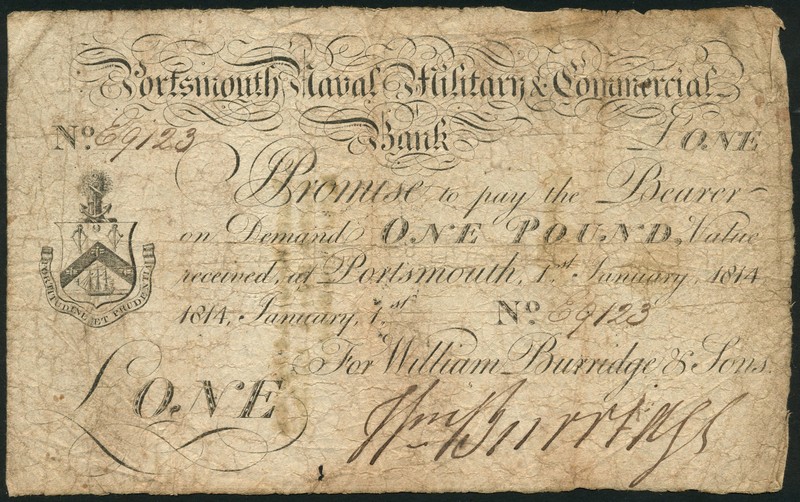 Portsmouth Naval Military & Commercial
Bank
No. 69123 £ONE
I Promise to pay the Bearer
on Demand ONE POUND, Value
received, at Portsmouth, 1st January, 1814,
1814, January, 1st No. 69123
For William Burridge & Sons.
£ONE
FORTITUDINE ET PRUDENTIA
Wm Burridge